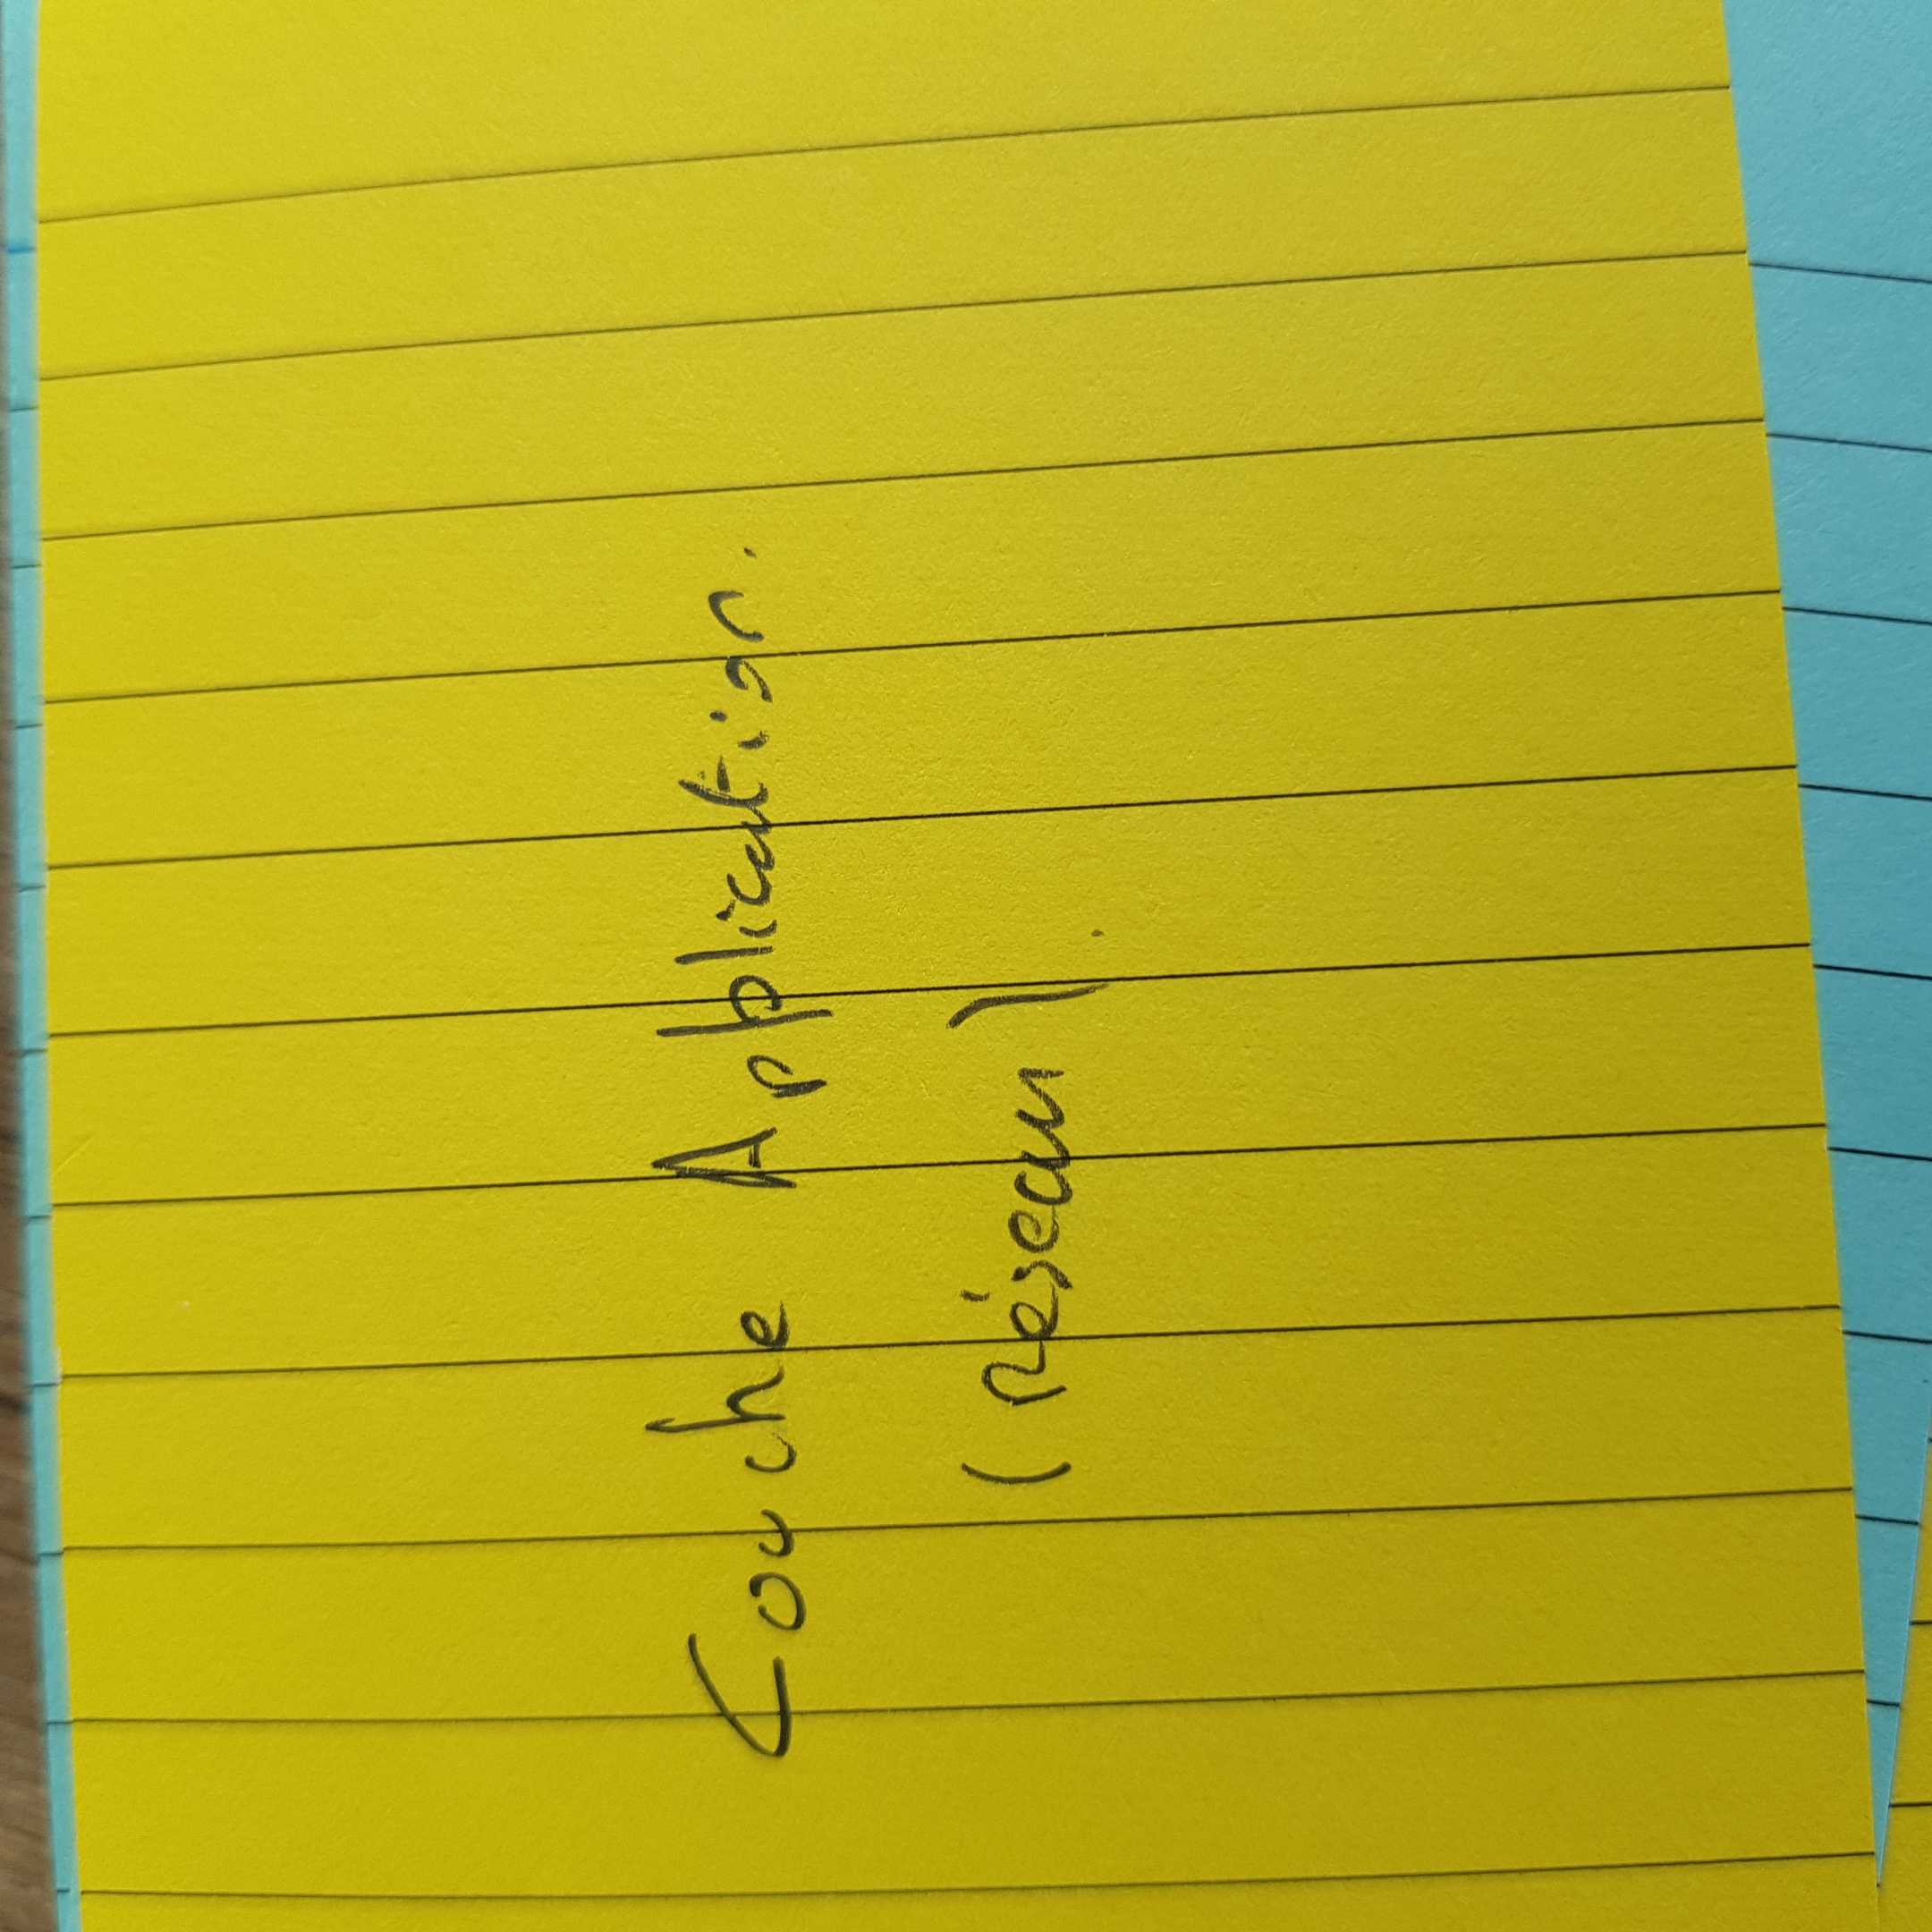 Couche Application.
(réseau).